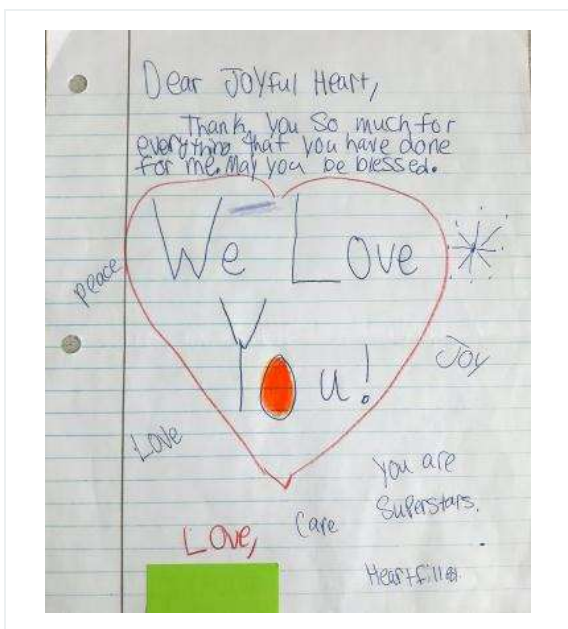 Dear Joyful Heart,
Thank you so much for
everything that you have done
for me. May you be blessed.
We Love
You!
peace
Joy
Love
you are
Superstars.
Care
Love,